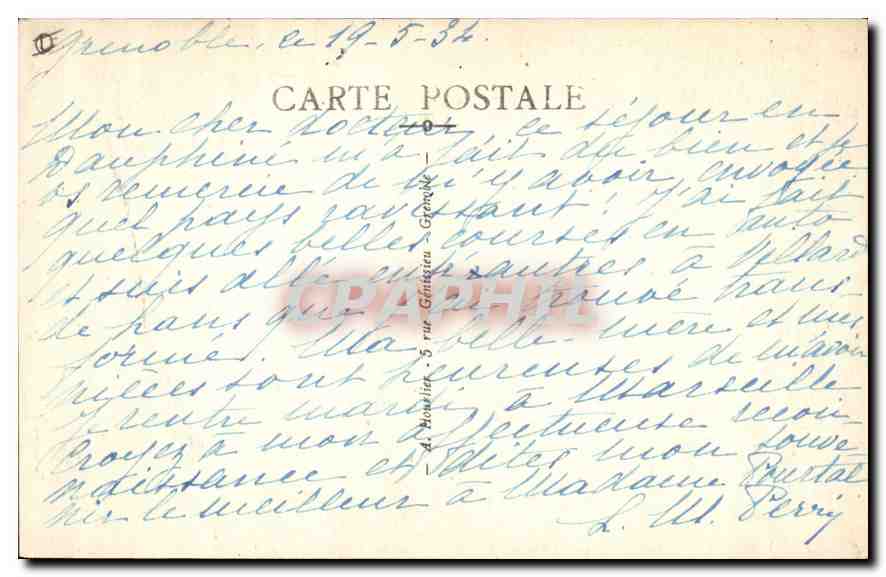 Grenoble, ce 19-5-34.
CARTE POSTALE
Mon cher docteur, ce séjour en
Dauphiné m'a fait du bien et je
vs remercie de m'y avoir envoyé
quel pays ravissant! J'ai fait
quelques belles courses en auto
et suis allé entr'autres à Villard
de Lans que j'ai trouvé trans
formé. Ma belle-mère et mes
nièces sont heureuses de m'avoir
Je rentre mardi à Marseille
Croyez à mon affectueuse recon
naissance et dites mon souve
nir le meilleur à Madame Pourtal
L. M. Perrij
- A. Mourlier - 5 rue Génissieu - Grenoble -
CPAPHIL